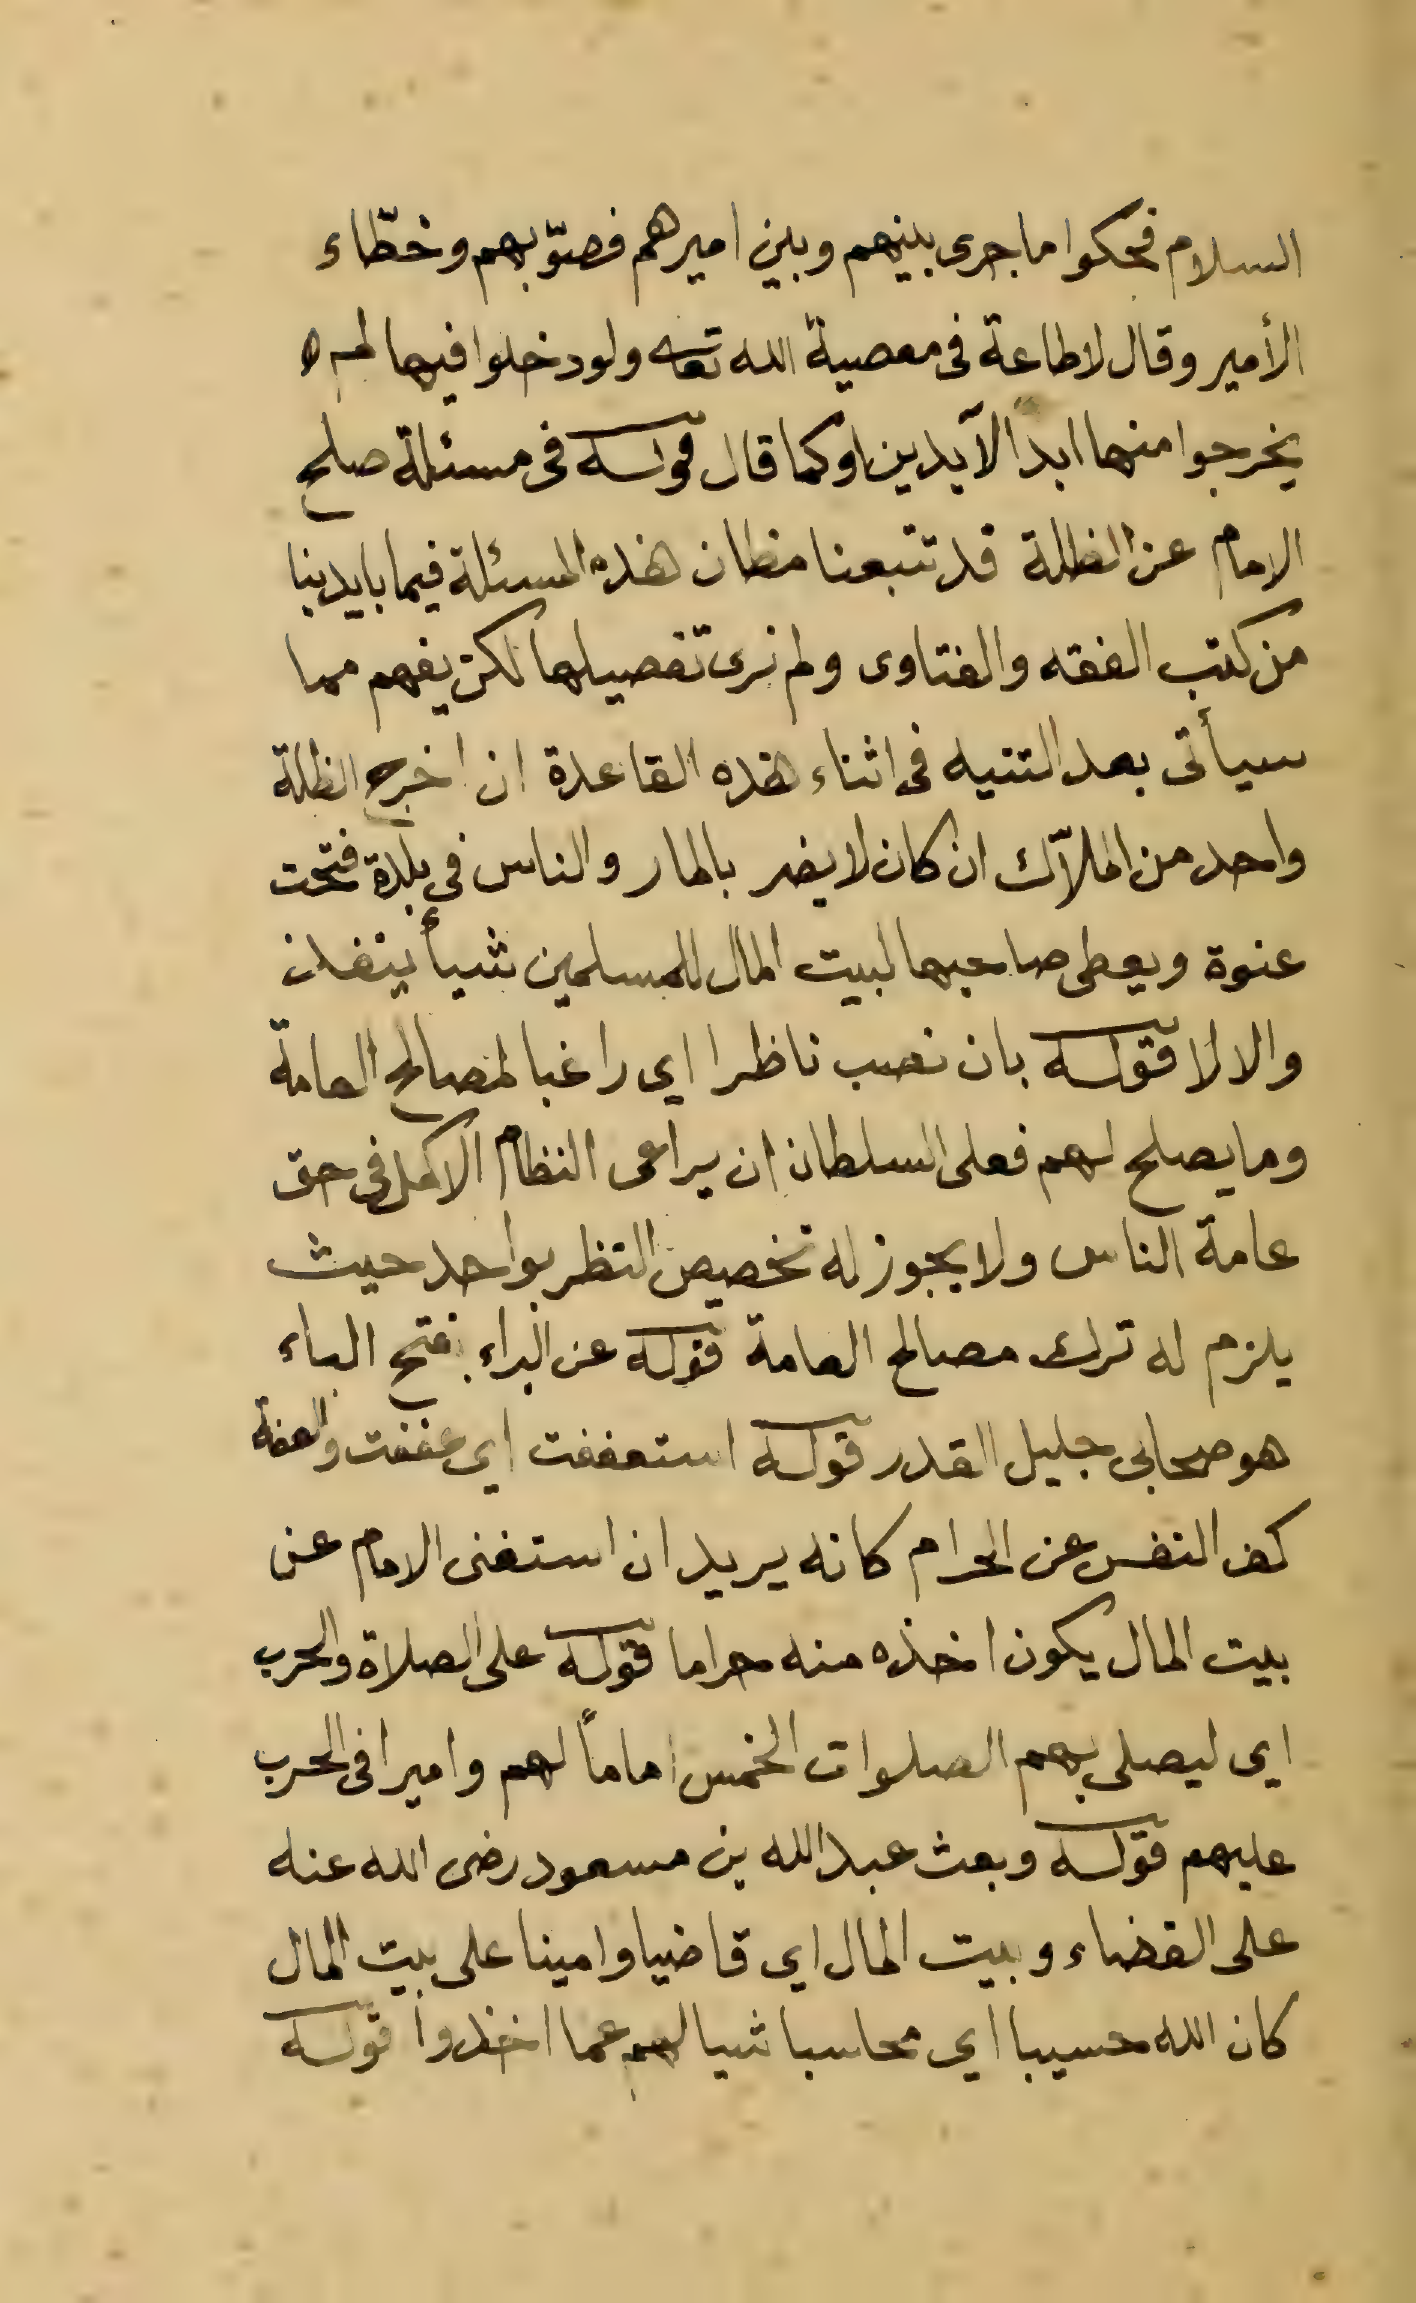 السلام فحكوا ما جرى بينهم وبين اميرهم فصوّبهم وخطّاء
الأمير وقال لا طاعة فى معصية الله تعا ولو دخلوا فيها لم
يخرجوا منها ابداً الآبدين او كما قال قوله فى مسئلة صلح
الامام عن الظلة قد تتبعنا مظان هذه المسئلة فيما بايدينا
من كتب الفقه والفتاوى ولم نرى تفصيلها لكن يفهم مما
سيأتى بعد التنبيه فى اثناء هذه القاعدة ان اخرج الظلة
واحد من الملاّك ان كان لا يضر بالمار والناس فى بلدة فتحت
عنوة ويعطى صاحبها لبيت المال للمسلمين شيأ ينفذ
والا لا قوله بان نصب ناظرا اى راغبا لمصالح العامة
وما يصلح لهم فعلى السلطان ان يراعى النظام الاكمل فى حق
عامة الناس ولا يجوز له تخصيص النظر بواحد حيث
يلزم له ترك مصالح العامة قوله عن البراء بفتح الباء
هو صحابى جليل القدر قوله استعففت اى عففت والعفة
كف النفس عن الحرام كانه يريد ان استغنى الامام عن
بيت المال يكون اخذه منه حراما قوله على الصلاة والحرب
اى ليصلى بهم الصلوات الخمس اماماً لهم واميرا فى الحرب
عليهم قوله وبعث عبد الله بن مسعود رضى الله عنه
على القضاء وبيت المال اى قاضيا وامينا على بيت المال
كان الله حسيبا اى محاسبا شيا لهم عما اخذوا قوله